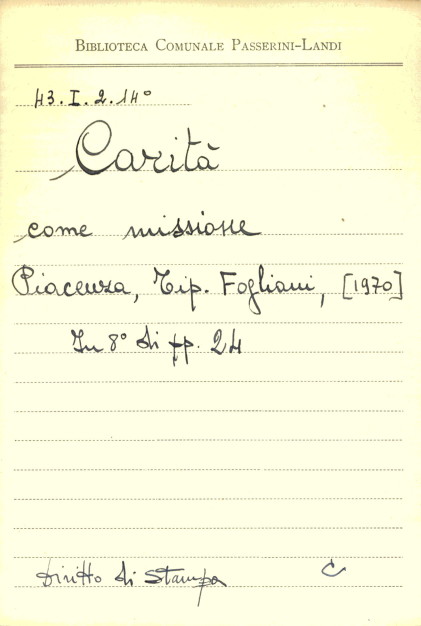 BIBLIOTECA COMUNALE PASSERINI-LANDI
43.I.2.14°
Carità
come missione
Piacenza, Tip. Fogliani, [1970]
In 8° di pp. 24
Diritto di stampa C